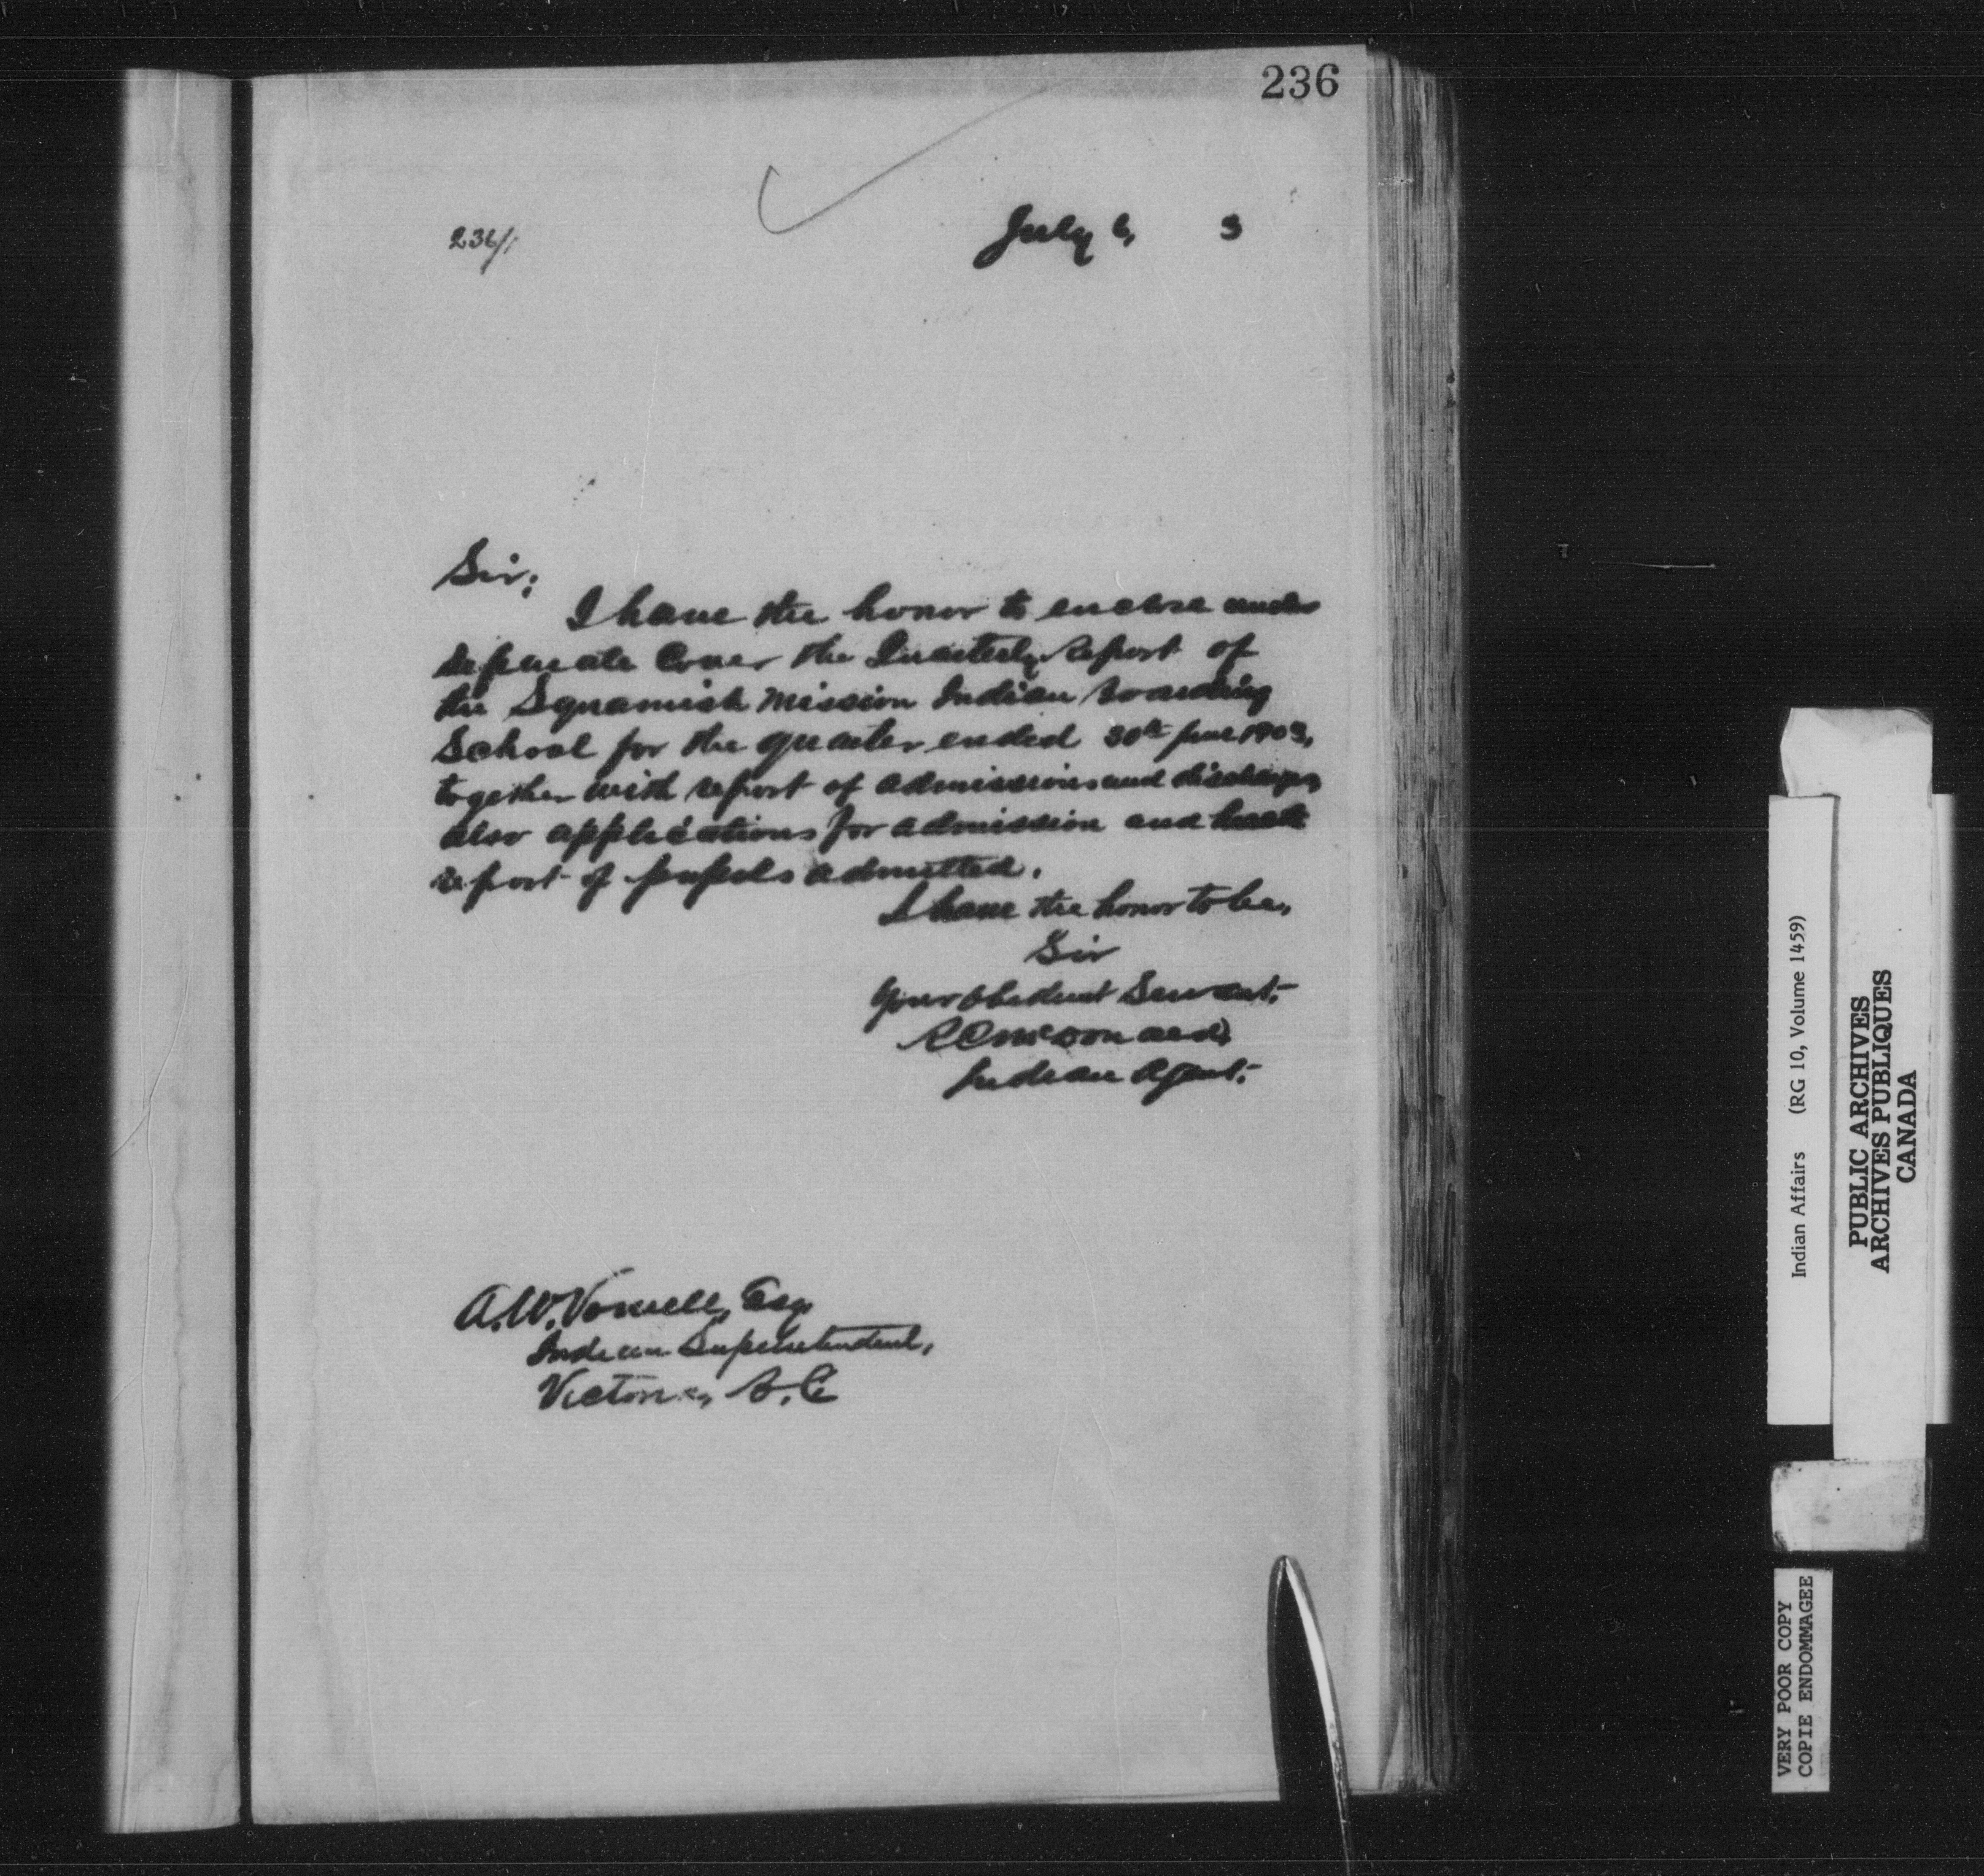 236
236/1
July 6, 3
Sir;
I have the honor to enclose under
separate Cover the Quarterly report of
the Squamish Mission Indian boarding
School for the quarter ended 30th June 1903,
together with report of admissions and discharges
also applications for admission and health
report of pupils admitted.
I have the honor to be,
Sir
Your obedient Servant,
R C McDonald,
Indian Agent.
A. W. Vowell, Esq
Indian Superintendent,
Victoria, B.C
Indian Affairs (RG 10, Volume 1459)
PUBLIC ARCHIVES
ARCHIVES PUBLIQUES
CANADA
VERY POOR COPY
COPIE ENDOMMAGEE